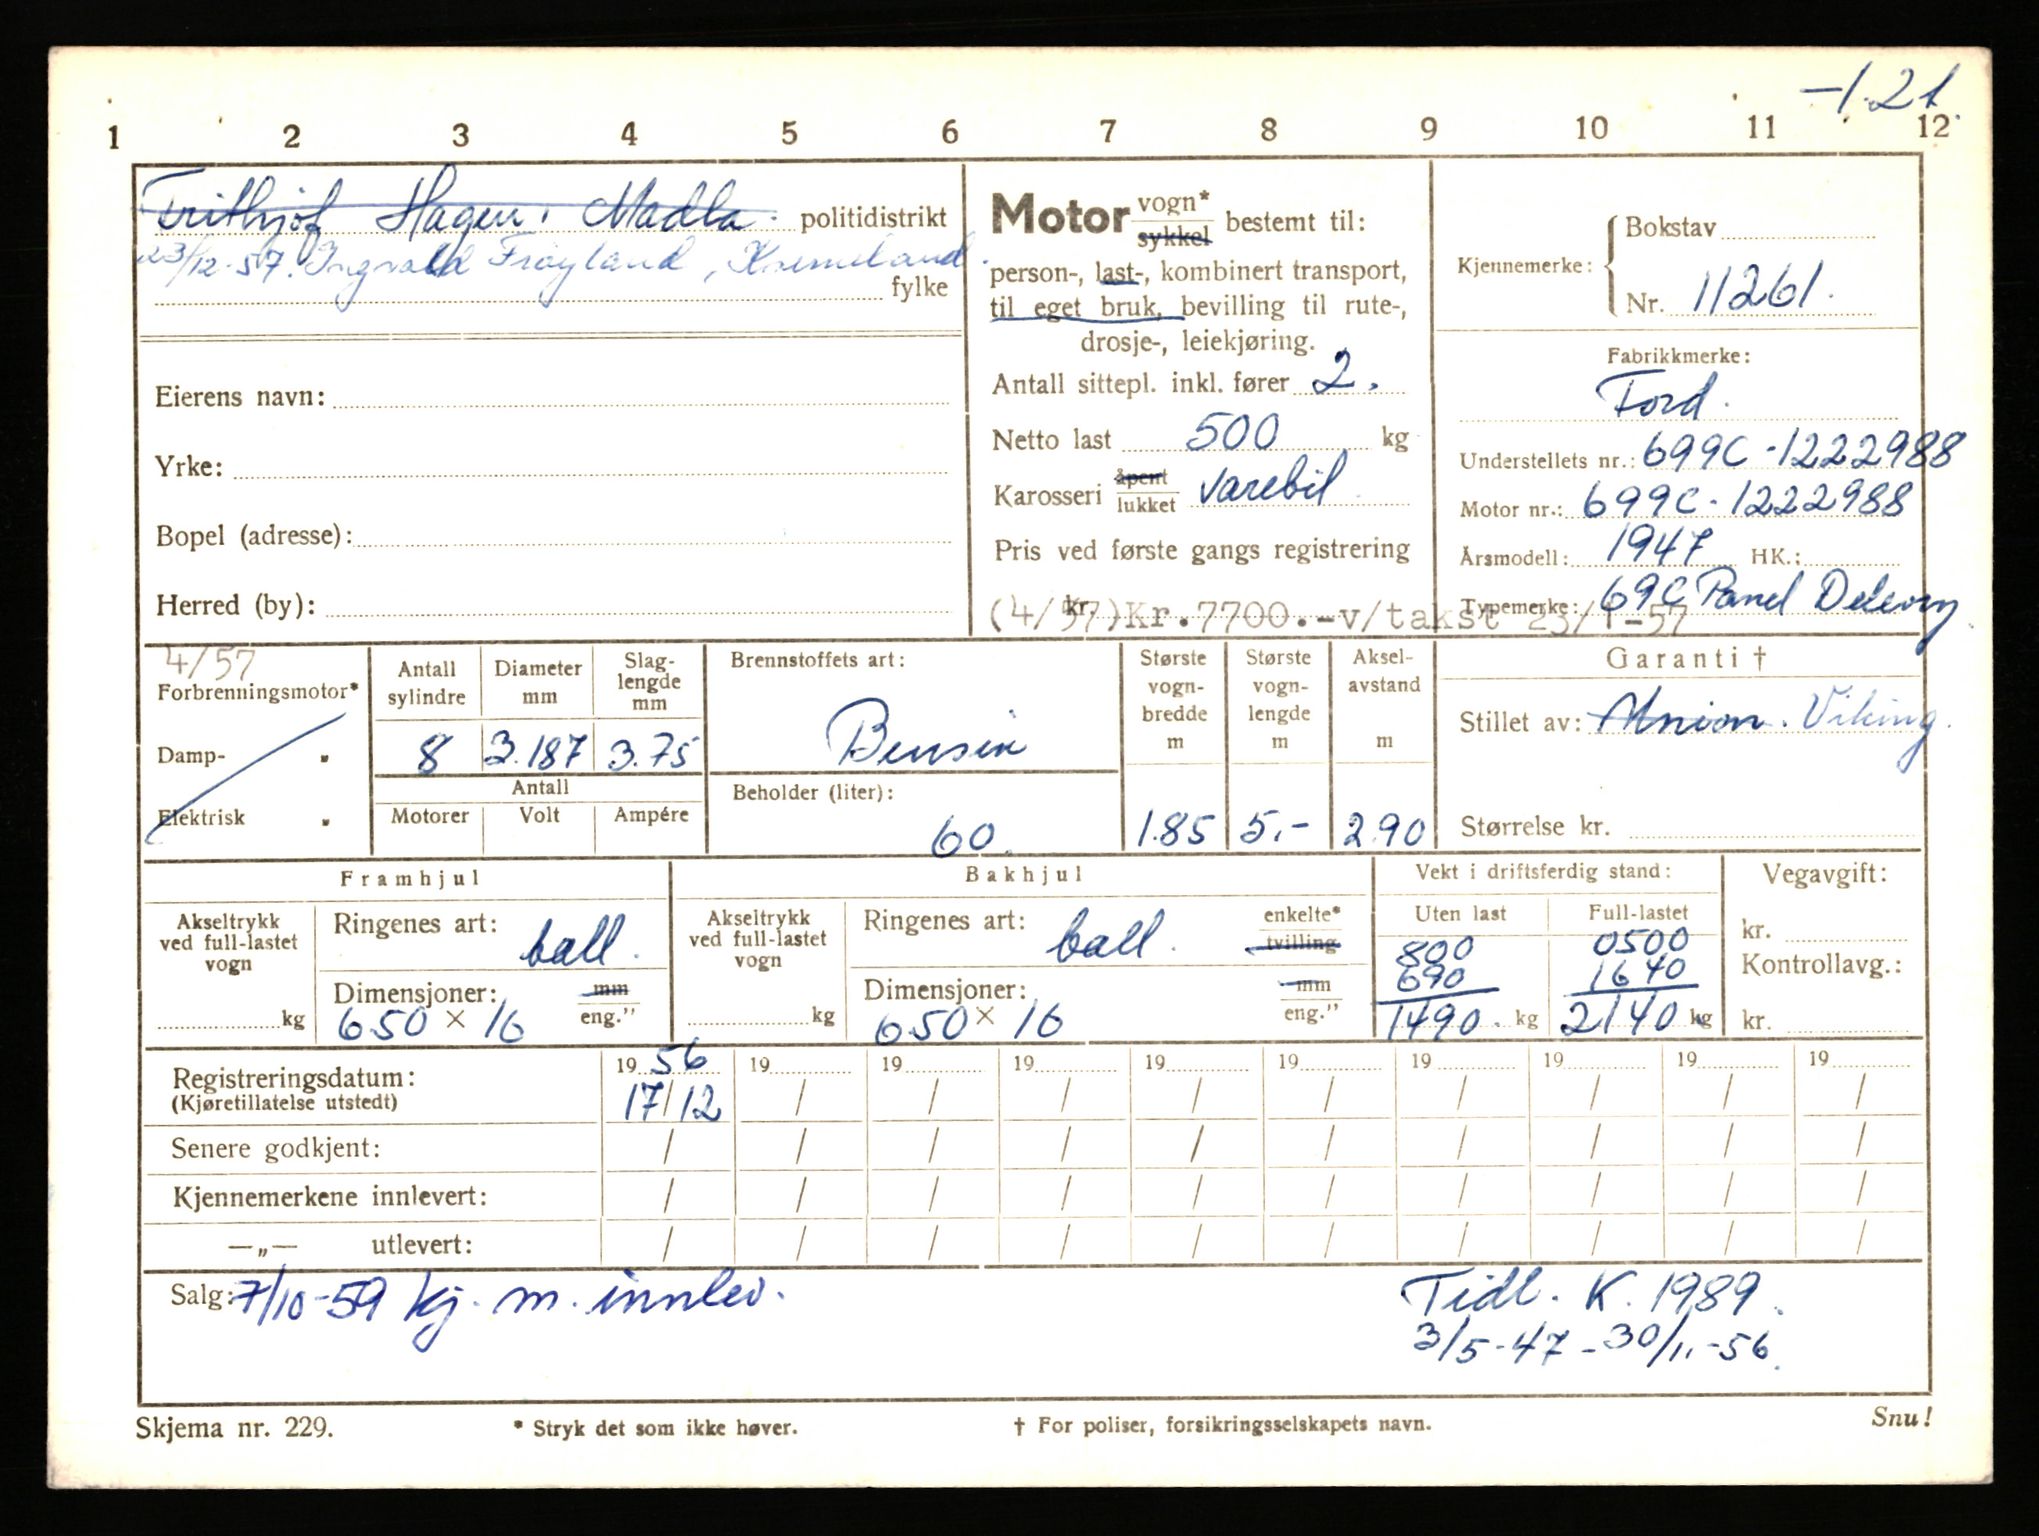 -1.21.
1 2 3 4 5 6 7 8 9 10 11 12
Frithjof Hagen. Madla. politidistrikt
23/12-57. Ingvald Frøyland, Kverneland.
fylke
Eierens navn:
Yrke:
Bopel (adresse):
Herred (by):
Motor vogn* sykkel bestemt til:
person-, last-, kombinert transport,
til eget bruk, bevilling til rute-,
drosje-, leiekjøring.
Antall sittepl. inkl. fører 2.
Netto last 500 kg
Karosseri åpent lukket varebil
Pris ved første gangs registrering
kr.
(4/57)Kr.7700.-v/takst 23/1-57
Bokstav
Kjennemerke:
Nr. 11261.
Fabrikkmerke:
Ford.
Understellets nr.: 699C-1222988
Motor nr.: 699C-1222988
Årsmodell: 1947 HK.:
Typemerke: 69C Panel Delevry
4/57
Forbrenningsmotor*
Damp- "
Elektrisk "
Antall sylindre
Diameter mm
Slaglengde mm
8 3.187 3.75
Antall
Motorer Volt Ampére
Brennstoffets art:
Bensin
Beholder (liter):
60.
Største vognbredde m
Største vognlengde m
Akselavstand m
1.85 5.- 2.90
Garanti †
Stillet av: Union. Viking.
Størrelse kr.
Framhjul
Akseltrykk ved full-lastet vogn
kg
Ringenes art: ball.
Dimensjoner: mm
650 × 16 eng."
Bakhjul
Akseltrykk ved full-lastet vogn
kg
Ringenes art: ball. enkelte* tvilling
Dimensjoner: mm
650 × 16 eng."
Vekt i driftsferdig stand:
Uten last Full-lastet
800 0500
690 1640
1490. kg 2140. kg
Vegavgift:
kr.
Kontrollavg.:
kr.
Registreringsdatum: 1956 19 19 19 19 19 19 19 19 19
(Kjøretillatelse utstedt) 17/12 / / / / / / / / /
Senere godkjent: / / / / / / / / / /
Kjennemerkene innlevert: / / / / / / / / / /
—„— utlevert: / / / / / / / / / /
Salg: 7/10-59 kj. m. innlev.
Tidl. K. 1989.
3/5-47-30/11-56.
Skjema nr. 229.
* Stryk det som ikke høver.
† For poliser, forsikringsselskapets navn.
Snu!